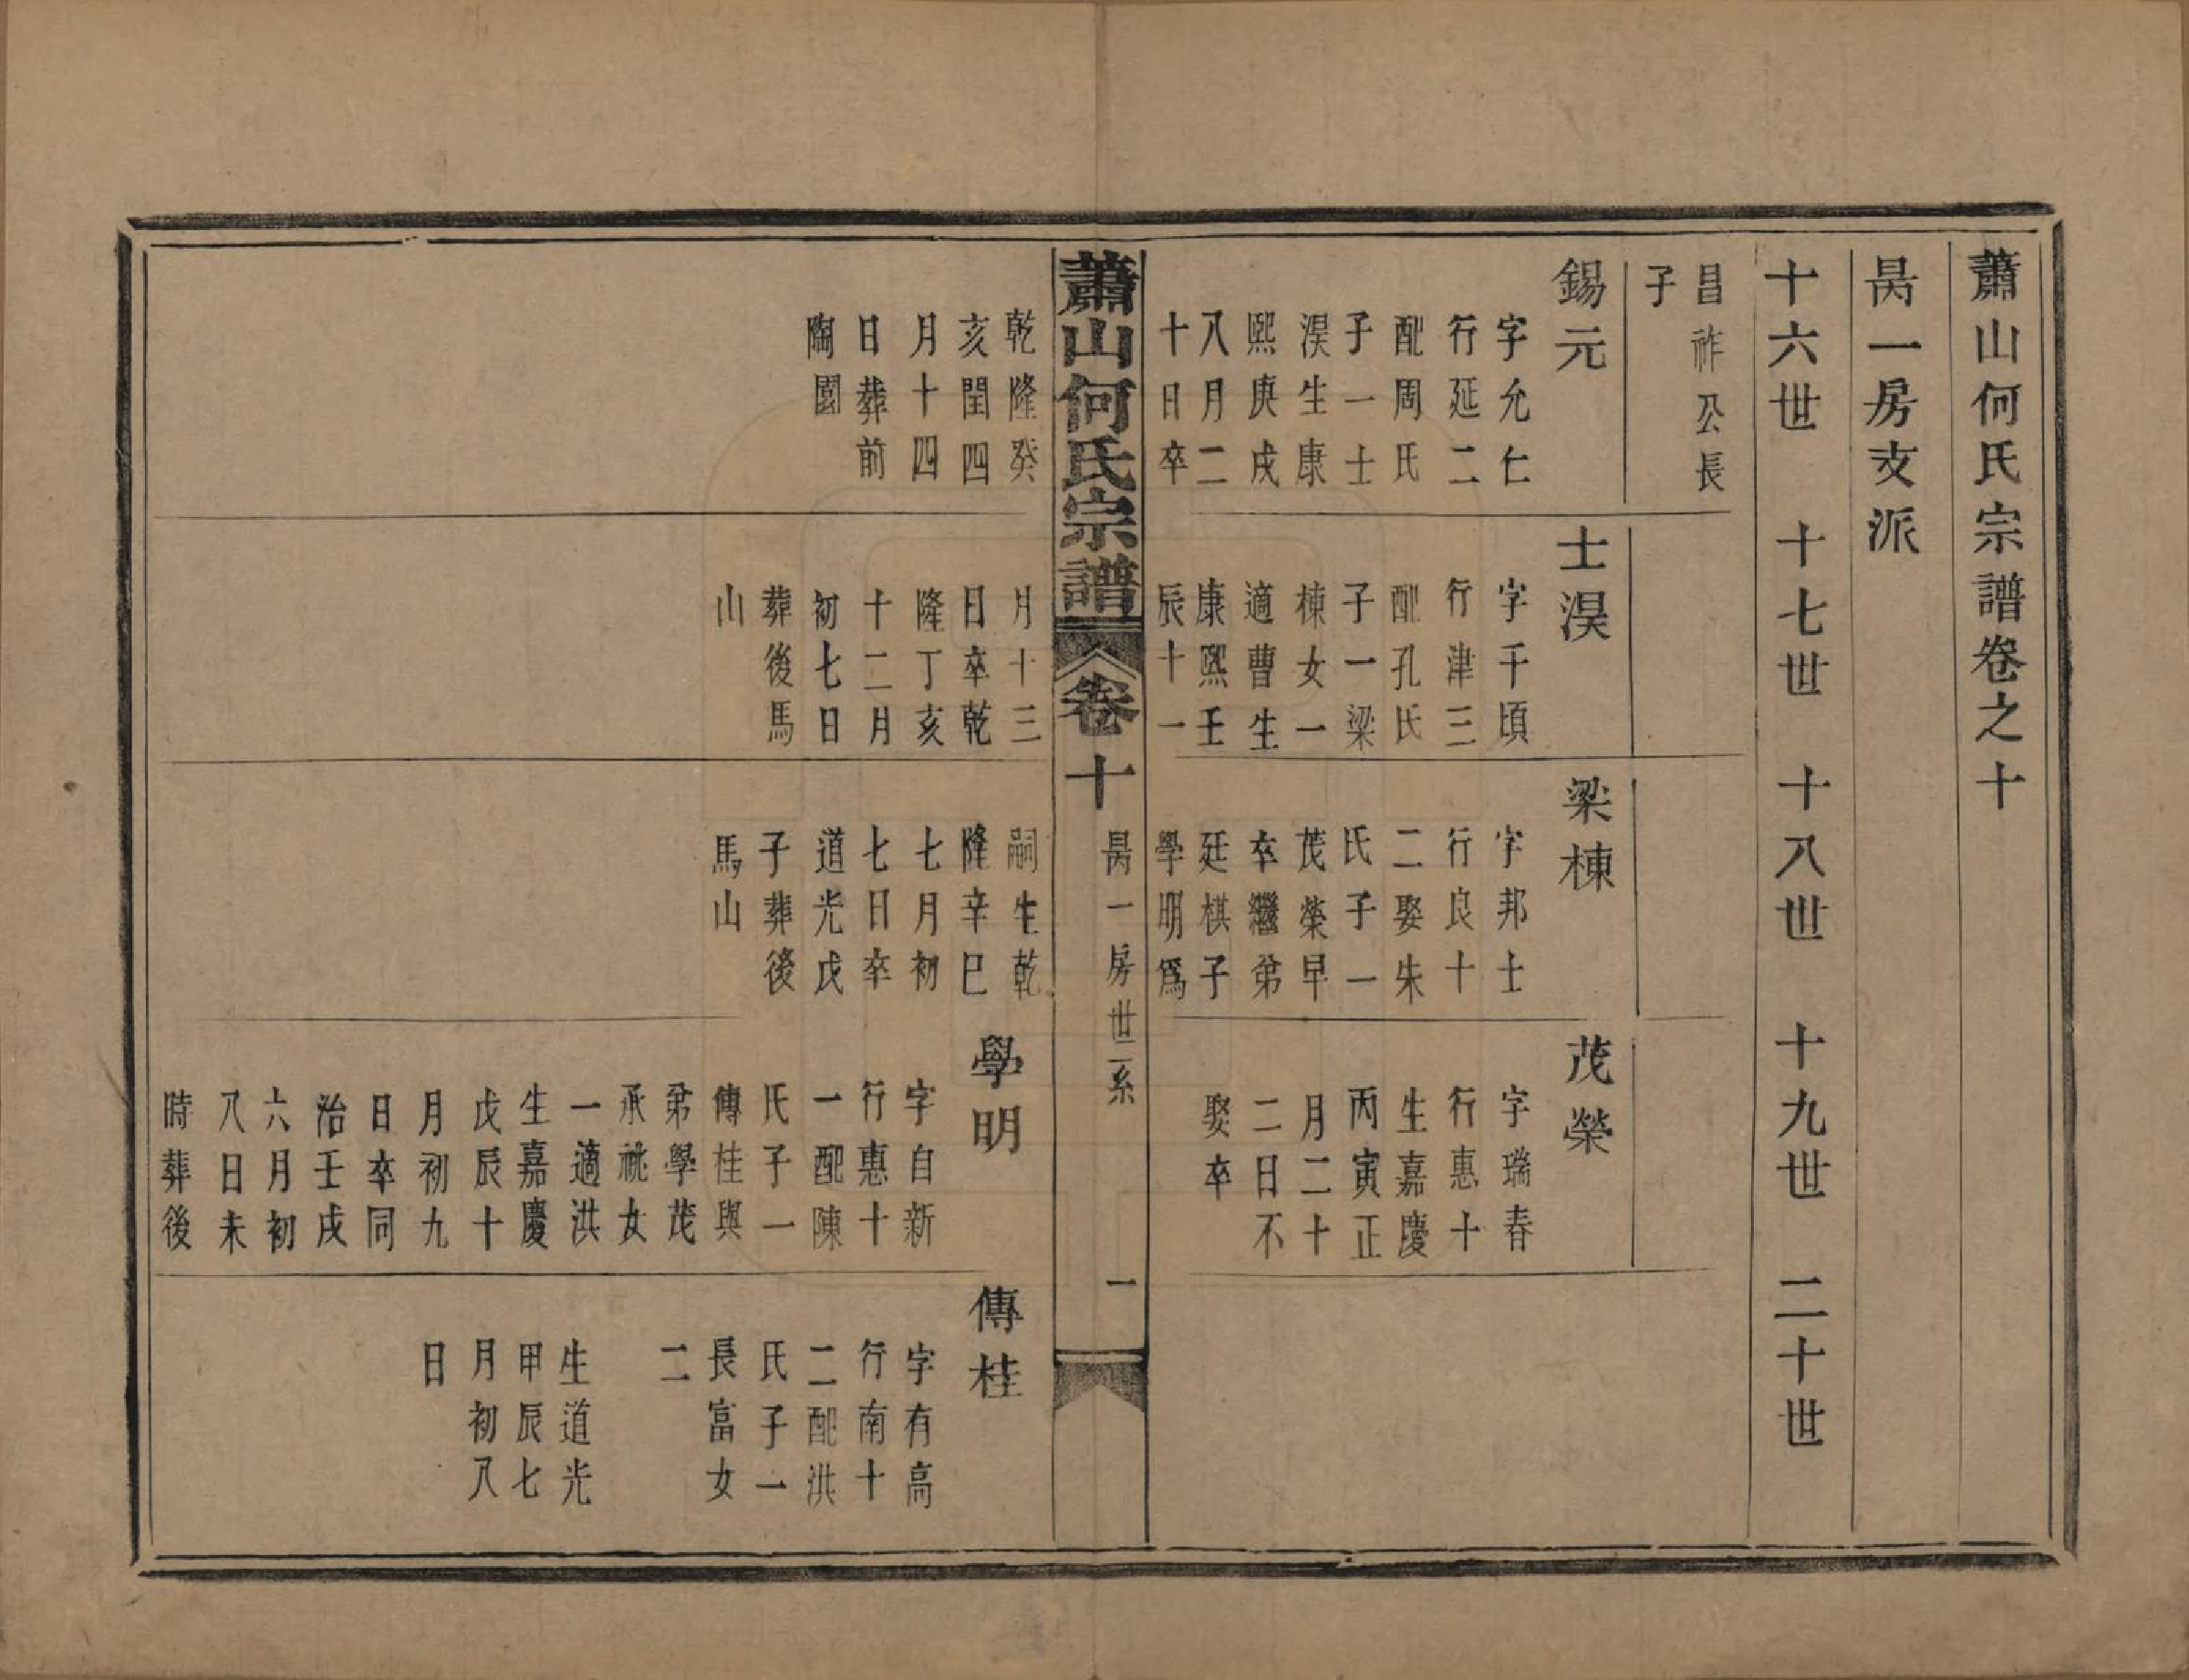 蕭山何氏宗譜卷之十
昺一房支派
十六世 十七世 十八世 十九世 二十世
昌祚公長
子
錫元
字允仁
行延二
配周氏
子一士
淏生康
熙庚戌
八月二
十日卒
乾隆癸
亥閏四
月十四
日葬前
陶園
士淏
字千頃
行津三
配孔氏
子一梁
棟女一
適曹生
康熙壬
辰十一
月十三
日卒乾
隆丁亥
十二月
初七日
葬後馬
山
梁棟
字邦士
行良十
二娶朱
氏子一
茂榮早
卒繼弟
廷棋子
學明爲
嗣生乾
隆辛巳
七月初
七日卒
道光戊
子葬後
馬山
茂榮
字瑞春
行惠十
生嘉慶
丙寅正
月二十
二日不
娶卒
學明
字自新
行惠十
一配陳
氏子一
傳桂與
弟學茂
承祧女
一適洪
生嘉慶
戊辰十
月初九
日卒同
治壬戌
六月初
八日未
時葬後
傳桂
字有高
行南十
二配洪
氏子一
長富女
二
生道光
甲辰七
月初八
日
蕭山何氏宗譜 卷十 昺一房世系 一